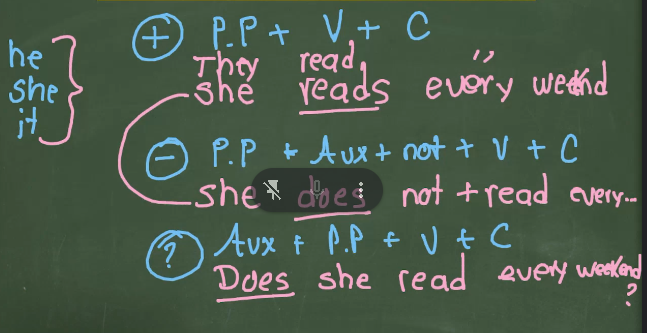 he
she
it
+ P.P + V + C
They read "
she reads every weekend
- P.P + Aux + not + V + C
she does not + read every...
? Aux + P.P + V + C
Does she read every weekend ?